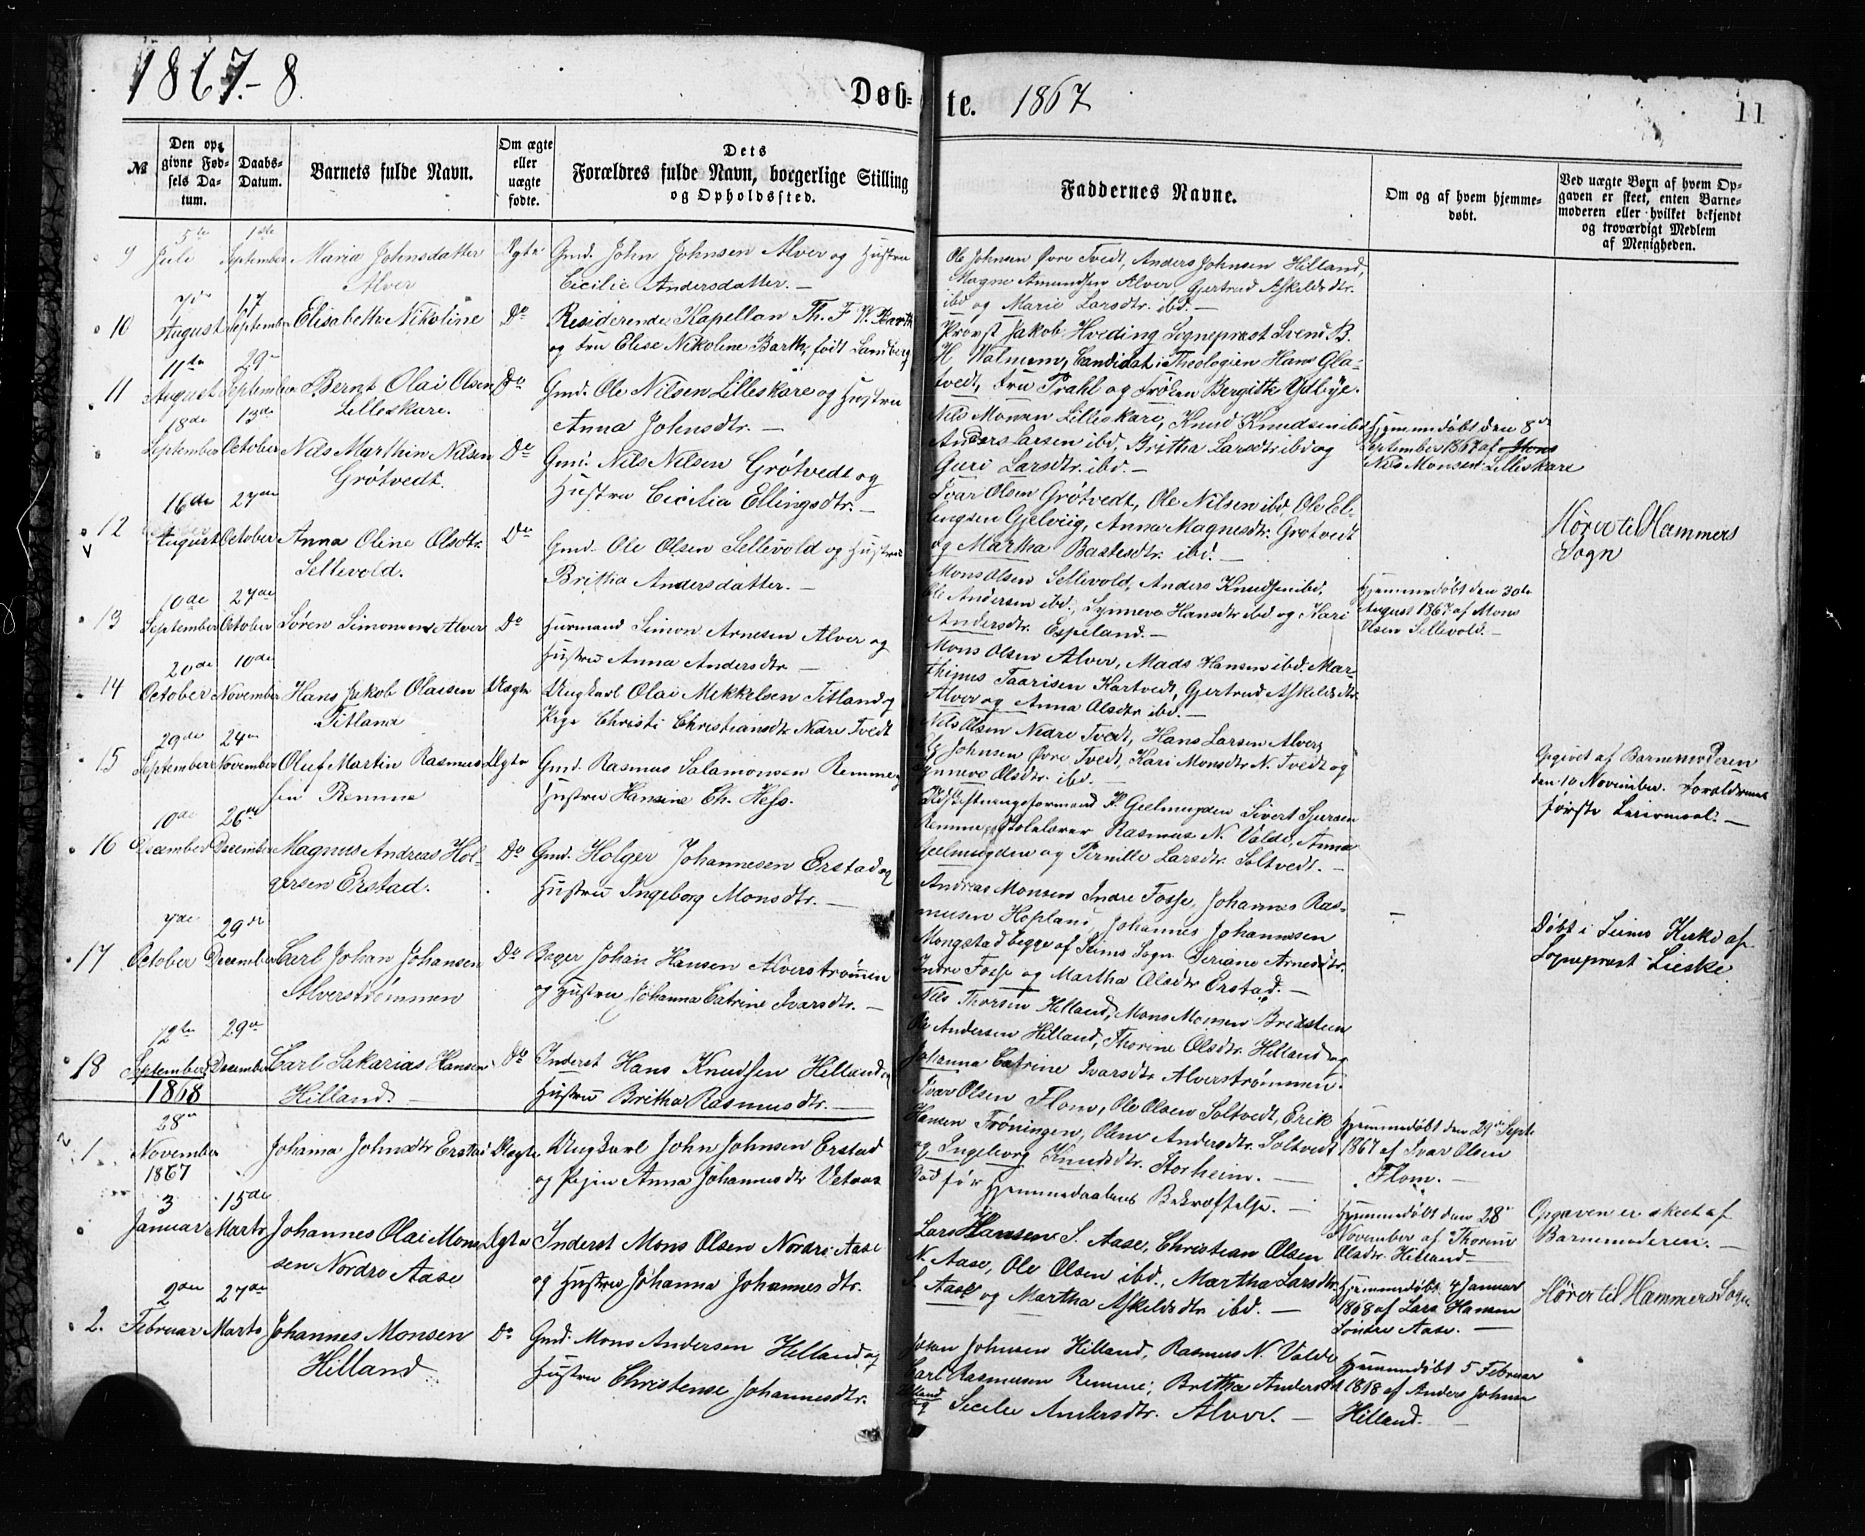 1867.-8.
Døb-
te. 1867
11
№
Den op-
givne Fød-
sels Da-
tum.
Daabs-
Datum.
Barnets fulde Navn.
Om ægte
eller
uægte
fødte.
Dets
Forældres fulde Navn, borgerlige Stilling
og Opholdssted.
Faddernes Navne.
Om og af hvem hjemme-
døbt.
Ved uægte Børn af hvem Op-
gaven er skeet, enten Barne-
moderen eller hvilket bekjendt
og troværdigt Medlem
af Menigheden.
5te 1ste
9 Juli September Maria Johnsdatter Ægte Gmd. John Johnsen Alver og Hustru
Alver Cecilie Andersdatter. —
Ole Johnsen Øvre Tvedt, Anders Johnsen Hilland,
Magne Amundsen Alver, Gjertrud Askeldsdtr.
ibd og Marie Larsdtr. ibd. —
7de 17
10 August September Elisabeth Nikoline Do Residerende Kapellan Th. F. W. Barth
og Fru Elise Nikoline Barth, født Landberg
Provst Jakob Hveding Sognepræst Svend B.
H. Walmem, Candidat i Theologien Hans Gla-
tvedt, Fru Prahl og Frøken Bergitte Ydbye.
11te 29
11 August September Bernt Olai Olsen Do Gmd. Ole Nilsen Lilleskare og Hustru
Lilleskare. Anna Johnsdtr. —
Nils Monsen Lilleskare, Knud Knudsen ibd
Anders Larsen ibd, Britha Larsdtr ibd og
Guri Larsdtr. ibd. —
Hjemmedøbt den 8de
September 1867 af Mons
Nils Monsen Lilleskare
18de 13de
September October Nils Marthin Nilsen Do Gmd. Nils Nilsen Grøtvedt og
Grøtvedt. Hustru Cicilia Ellingsdtr. —
Ivar Olsen Grøtvedt, Ole Nilsen ibd Ole El-
lingsen Gjelviig, Anna Magnesdtr. Grøtvedt
og Martha Bastesdtr. ibd. —
Hører til Hammers
Sogn
16de 27de
12 August October Anna Oline Olsdtr. Do Gmd. Ole Olsen Sellevold og Hustru
Sellevold. Britha Andersdatter. —
Mons Olsen Sellevold, Anders Knudsen ibd,
Ole Andersen ibd., Synneva Hansdtr ibd og Kari
Andersdtr. Espeland. —
Hjemmedøbt den 30te
August 1867 af Mons
Olsen Sellevold. —
10de 27de
13 September October Søren Simonsen Alver Do Huusmand Simon Arnesen Alver og
Hustru Anna Andersdtr. —
Mons Olsen Alver, Mads Hansen ibd. Mar-
thinus Taarisen Kartvedt, Gjertrud Askeldsdtr
Alver og Anna Olsdtr ibd. —
20de 10de
14 October November Hans Jakob Olaisen Uægte Ungkarl Olai Mikkelsen Titland og
Titland Pige Christi Christiansdtr Nedre Tvedt
Nils Olsen Nedre Tvedt, Hans Larsen Alver,
Ole Johnsen Øvre Tvedt, Kari Monsdtr N. Tvedt og
Synneve Olsdtr. ibd. —
Opgivet af Barnemoderen
den 10 November. Forældrenes
første Leiermaal. —
29de 24de
15 September November Oluf Martin Rasmus- Ægte Gmd. Rasmus Salamonsen Remme og
sen Remme Hustru Hansine Ch. Hess.
P. Geelmuyden Sivert Sjursen
Remme, Skolelærer Rasmus N. Valde, Anna
Geelmuyden og Pernille Larsdtr. Soltvedt. —
10de 26de
16 December December Magnus Andreas Hol- Do Gmd. Holger Johannesen Erstad og
gersen Erstad. Hustru Ingeborg Monsdtr. —
Andreas Monsen Indre Fosse, Johannes Ras-
musen Hopland, Johannes Johannesen
Mongstad begge af Seims Sogn Seriane Arnesdtr.
Indre Fosse og Martha Olsdtr Erstad. —
Døbt i Seims Kirke af
Sognepræst Lieske
7de 29de
17 October December Carl Johan Johansen Do Bager Johan Hansen Alverstrømmen
Alverstrømmen og Hustru Johanna Catrine Ivarsdtr. —
Nils Thorsen Hilland, Mons Monsen Bredsteen
Ole Andersen Hilland, Thorine Olsdtr. Hilland og
Johanna Catrine Ivarsdtr Alverstrømmen.
12te 29de
18 September December Carl Sakarias Hansen Do Inderst Hans Knudsen Hilland og
Hilland. Hustru Britha Rasmusdtr. —
Ivar Olsen Flom, Ole Olsen Soltvedt, Erik
Hansen Trøningen, Olene Andersdtr. Soltvedt
og Ingeborg Knudsdtr. Storheim. —
Hjemmedøbt den 29de Sept
1867 af Ivar Olsen
Flom. —
1868
28de
1 November Johanna Johnsdtr Erstad Uægte Ungkarl John Johnsen Erstad
1867 og Pigen Anna Johannesdtr Vetaas
Død før Hjemmedaabens Bekræftelse. —
Hjemmedøbt den 28de
November af Thorine
Olsdtr. Hilland —
Opgaven er skeet af
Barnemoderen. —
3 15de
Januar Marts Johannes Olai Mons- Ægte Inderst Mons Olsen Nordre Aase
sen Nordre Aase og Hustru Johanna Johannesdtr.
Lars Hansen S. Aase, Christian Olsen
N. Aase, Ole Olsen ibd., Martha Larsdtr.
S. Aase og Martha Askeldsdtr ibd. —
Hjemmedøbt 4 Januar
1868 af Lars Hansen
Søndre Aase. —
Hører til Hammers Sogn
2den 27de
2. Februar Marts Johannes Monsen Do Gmd. Mons Andersen Hilland og
Hilland Hustru Christense Johannesdtr.
Johan Johnsen Hilland, Rasmus N. Valde
Carl Rasmusen Remme, Britha Andersdtr
Hilland og Secilie Andersdtr. Alver. —
Hjemmedøbt 5 Februar
1868 af Anders Johnsen
Hilland. —